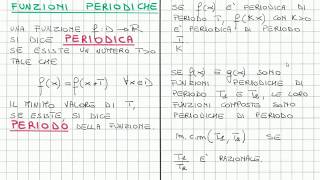 FUNZIONI PERIODICHE
UNA FUNZIONE f: D → R
SI DICE PERIODICA
SE ESISTE UN NUMERO T>0
TALE CHE
f(x) = f(x+T) ∀x∈D
IL MINIMO VALORE DI T,
SE ESISTE, SI DICE
PERIODO DELLA FUNZIONE.
SE f(x) E' PERIODICA DI
PERIODO T, f(Kx) CON K>0
E' PERIODICA DI PERIODO
T
K
SE f(x) E g(x) SONO
FUNZIONI PERIODICHE DI
PERIODO T₁ E T₂, LE LORO
FUNZIONI COMPOSTE SONO
PERIODICHE DI PERIODO
m.c.m(T₁, T₂) SE
T₁
T₂ E' RAZIONALE.